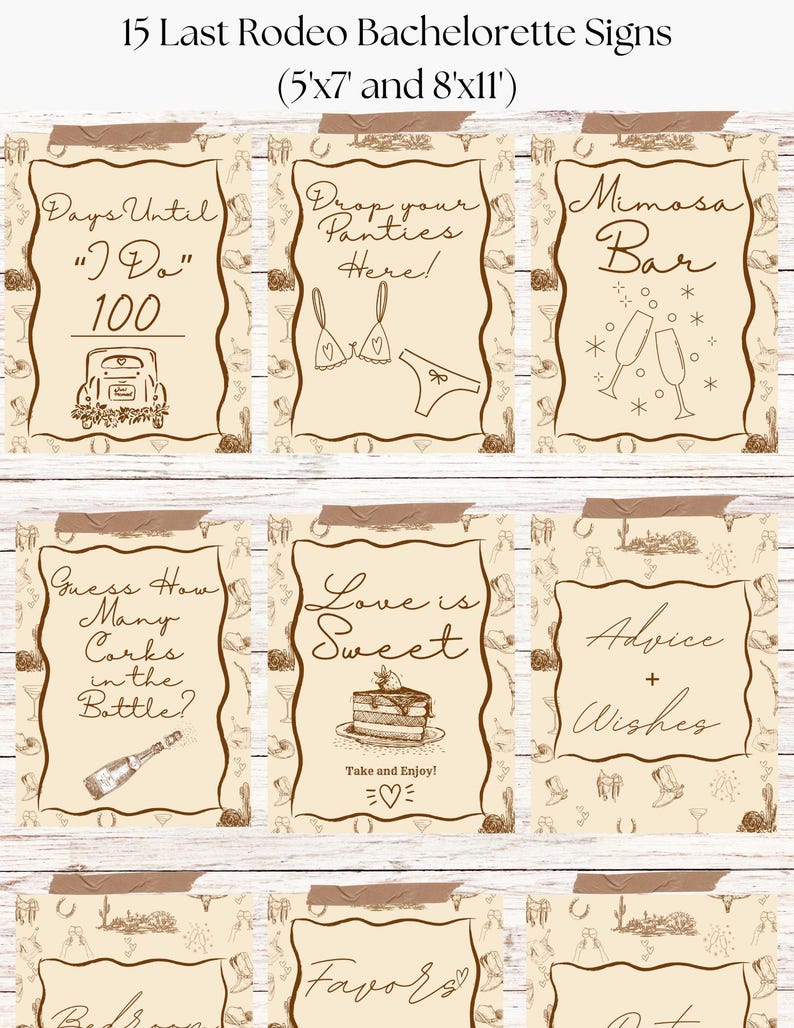 15 Last Rodeo Bachelorette Signs
(5'x7' and 8'x11')
Days Until
"I Do"
100
Just
Married
Drop your
Panties
Here!
Mimosa
Bar
Guess How
Many
Corks
in the
Bottle?
Love is
Sweet
Take and Enjoy!
Advice
+
Wishes
Bedroom
Favors